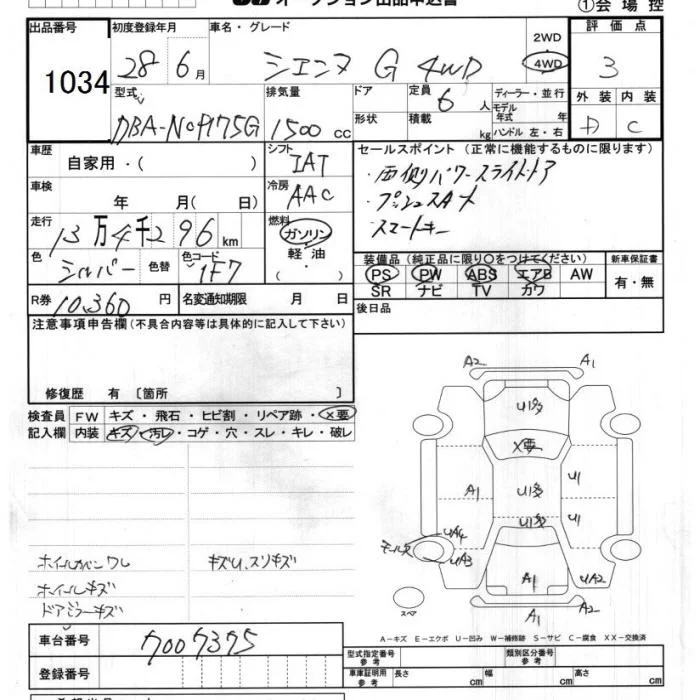 オークション出品申込書
①会場控
出品番号 初度登録年月 車名・グレード 2WD 4WD 評価点
1034 28年 6月 シエンタ G 4WD 3
型式 排気量 ドア 定員 6人 ディーラー・並行 外装 内装
DBA-NCP175G 1500cc 形状 積載 kg モデル年式 年 ハンドル 左・右 D C
車歴 自家用・( ) シフト IAT セールスポイント (正常に機能するものに限ります)
車検 年 月( 日) 冷房 AAC ・両側パワースライドドア
・プッシュスタート
・スマートキー
走行 13万4千296km 燃料 ガソリン・軽油・( )
色 シルバー 色替 色コード 1F7 装備品(純正品に限り○をつけてください) 新車保証書
PS PW ABS エアB AW 有・無
SR ナビ TV カワ
R券 10,360円 名変通知期限 月 日 後日品
注意事項申告欄(不具合内容等は具体的に記入して下さい)
修復歴 有 〔箇所 〕
検査員 FW キズ・飛石・ヒビ割・リペア跡・X要
記入欄 内装 キズ・汚レ・コゲ・穴・スレ・キレ・破レ
A2 A1
U1多
X要
A1 U1多 U1
U1多 U1
UA4
UA3 A1 UA2
A1 A2
スペア
ホイールカバーワレ キズU、スリキズ
ホイールキズ
ドアミラーキズ
A-キズ E-エクボ U-凹み W-補修跡 S-サビ C-腐食 XX-交換済
車台番号 7007375
登録番号
型式指定番号 参考 類別区分番号 参考
車庫証明用 参考 長さ cm 幅 cm 高さ cm